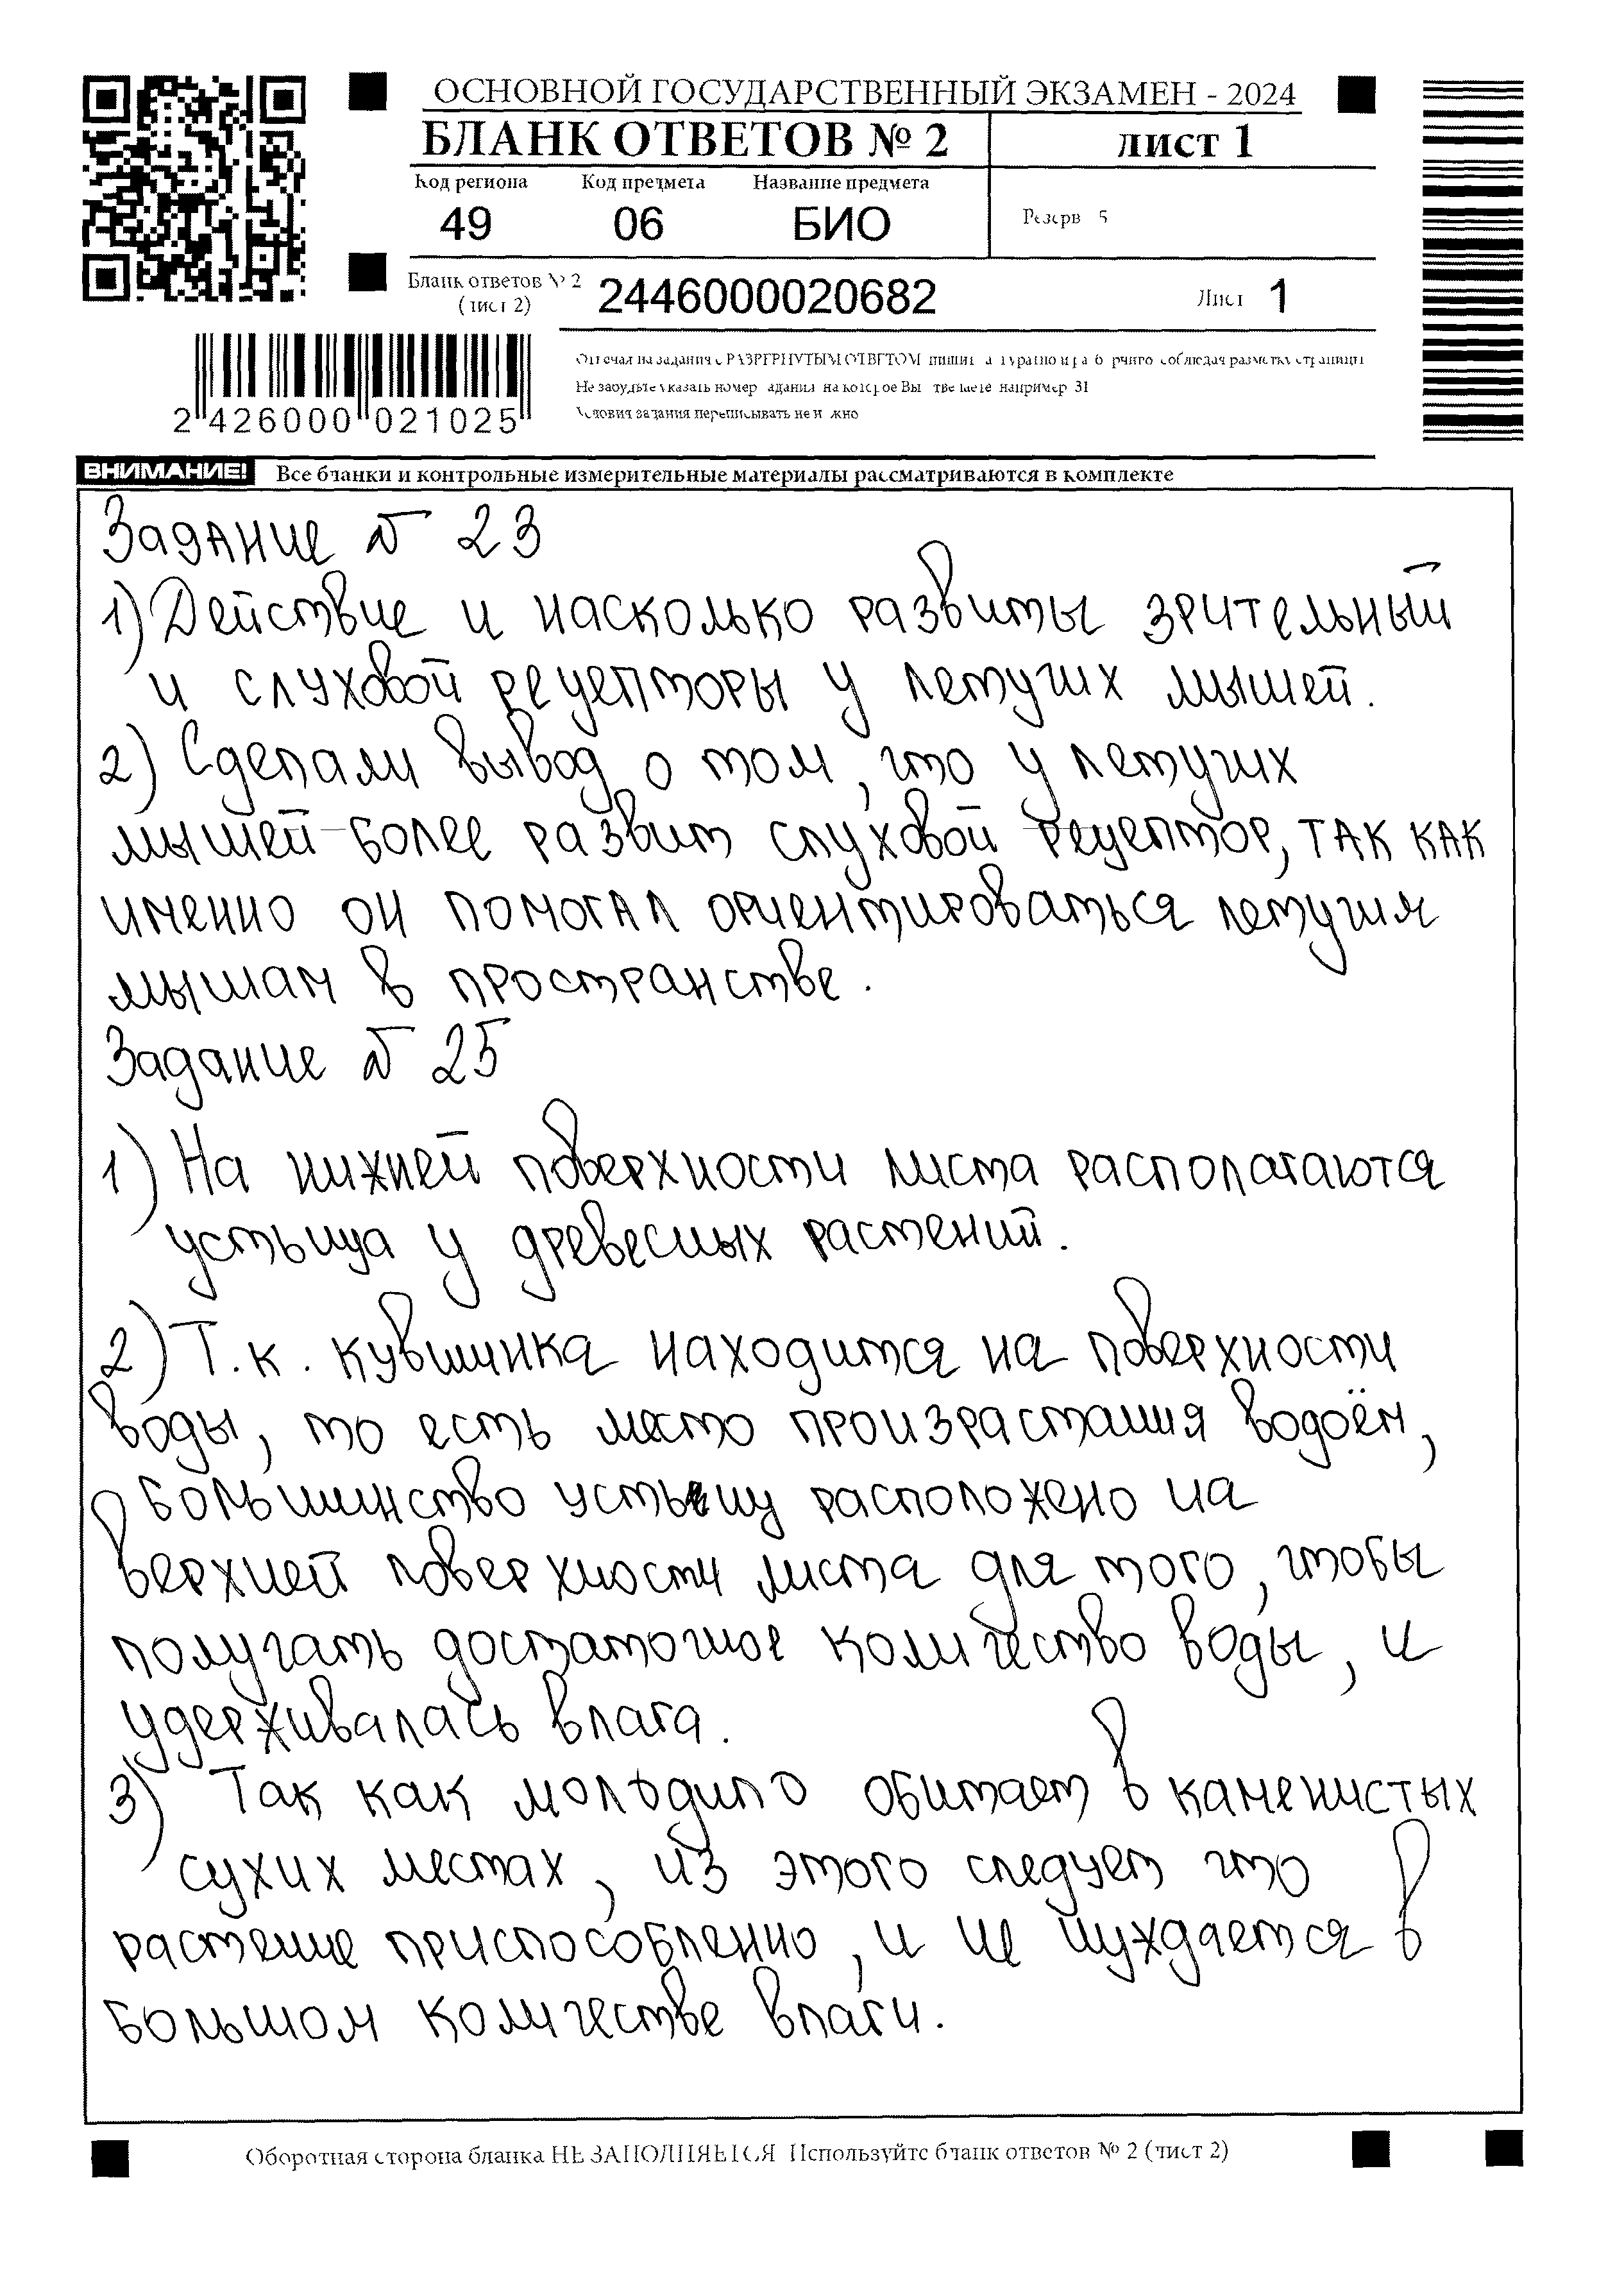 ОСНОВНОЙ ГОСУДАРСТВЕННЫЙ ЭКЗАМЕН - 2024
БЛАНК ОТВЕТОВ № 2
лист 1
Код региона Код предмета Название предмета
49 06 БИО
Резерв 5
Бланк ответов № 2
(лист 2)
2446000020682
Лист 1
2 426000 021025
Условия задания переписывать не нужно
ВНИМАНИЕ! Все бланки и контрольные измерительные материалы рассматриваются в комплекте
Задание № 23
1) Действие и насколько развиты зрительный
и слуховой рецепторы у летучих мышей.
2) Сделали вывод о том, что у летучих
мышей более развит слуховой рецептор, так как
именно он помогал ориентироваться летучим
мышам в пространстве.
Задание № 25
1) На нижней поверхности листа располагаются
устьица у древесных растений.
2) Т.к. кувшинка находится на поверхности
воды, то есть место произрастания водоём,
большинство устьиц расположено на
верхней поверхности листа для того, чтобы
получать достаточное количество воды, и
удерживалась влага.
3) Так как молодило обитает в каменистых
сухих местах, из этого следует что
растение приспособленно, и не нуждается в
большом количестве влаги.
Оборотная сторона бланка НЕ ЗАПОЛНЯЕТСЯ Используйте бланк ответов № 2 (лист 2)